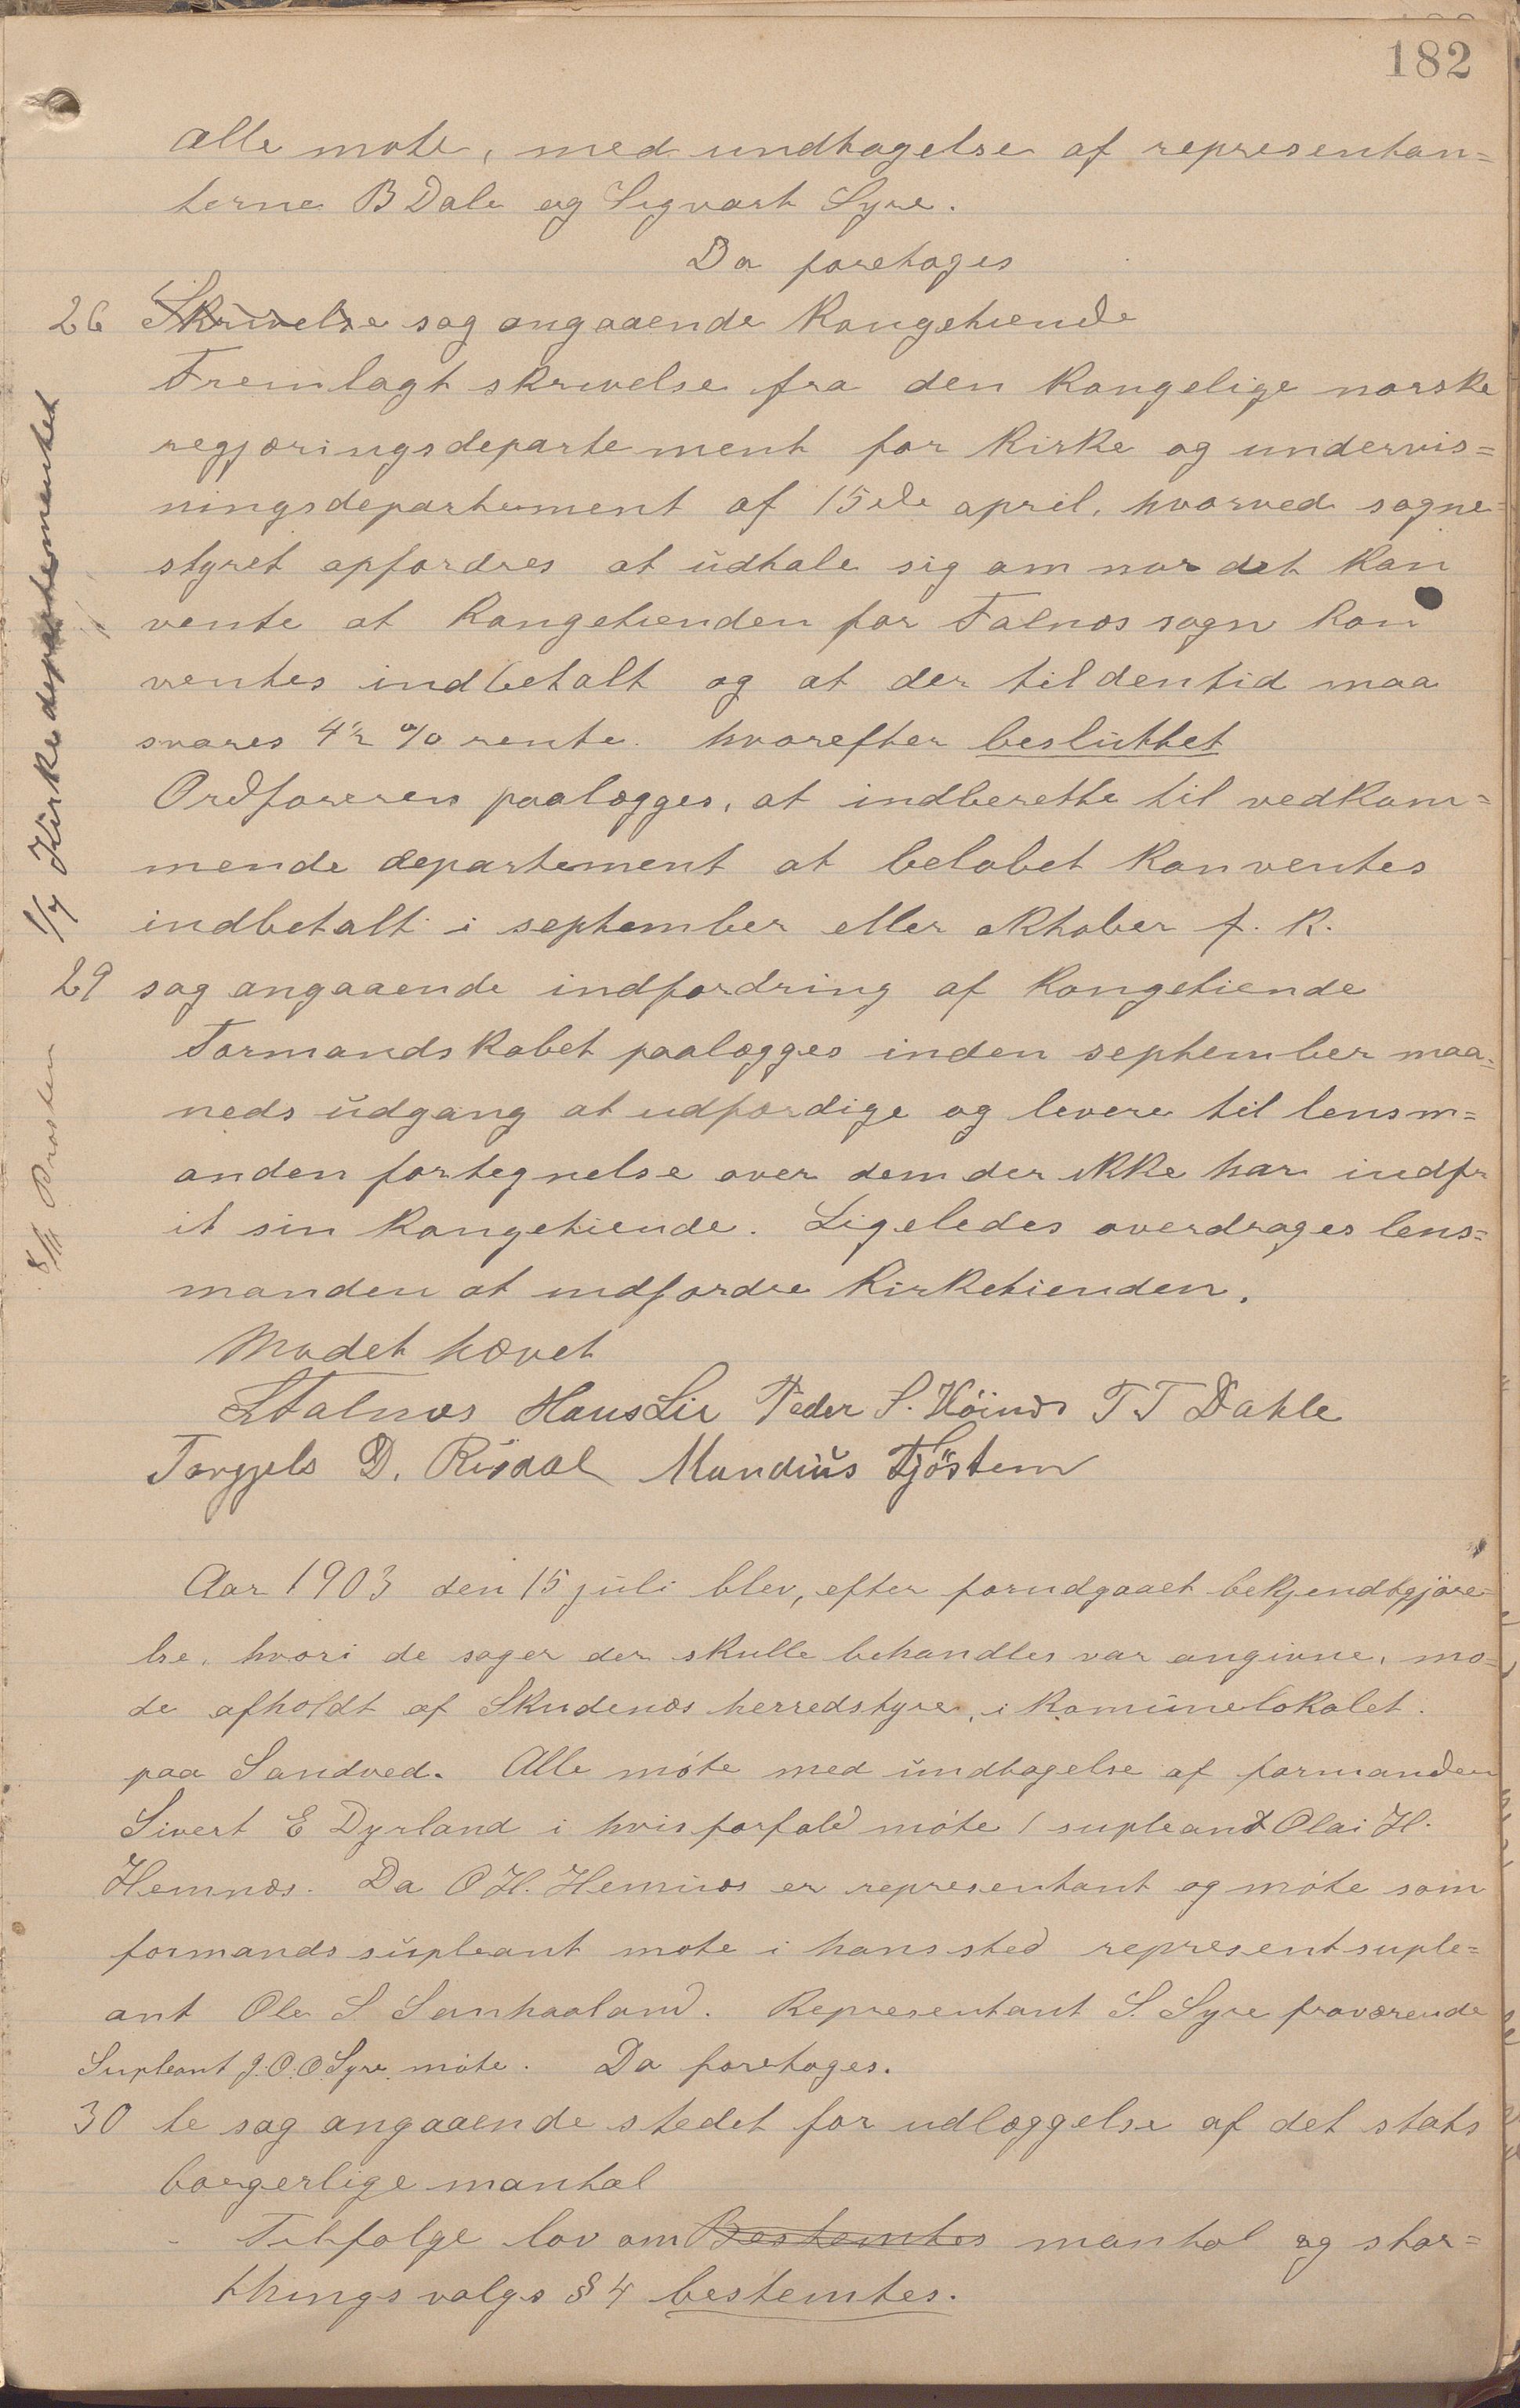 182
alle møte, med undtagelse af representan=
terne B Dale og Sigvart Syre.
Da foretoges
26 Skrivelse sag angaaende Kongetiende
Fremlagt skrivelse fra den Kongelige norske
regjæringsdepartement for Kirke og undervis=
ningsdepartement af 15de april, hvorved sogne=
styret opfordres at udtale sig om nor det kan
vente at Kongetienden for Falnæs sogn kan
ventes indbetalt og at der til den tid maa
svares 4½ % rente. hvorefter besluttet
Ordføreren paalægges, at indberette til vedkom=
mende departement at beløbet kan ventes
indbetalt i september eller oktober f. k.
29 sag angaaende indfordring af Kongetiende
Formandskabet paalægges inden september maa=
neds udgang at udfærdige og levere til lensm=
anden fortegnelse over dem der ikke har indfr
it sin Kongetiende. Ligeledes overdrages lens=
manden at indfordre Kirketienden.
Mødet hævet
Falnæs Hans Lie Peder S. Höinæs T T Dahle
Torgjels D. Risdal Mandius Tjöstem
Aar 1903 den 15 juli blev, efter forudgaaet bekjendtgjöre=
lse, hvori de sager der skulle behandles var angivne, mø=
de afholdt af Skudenæs herredstyre, i Komunelokalet
paa Sandved. Alle möte med undtagelse af formanden
Sivert E Dyrland i hvis forfald möte 1 supleant Olai H.
Hemnæs. Da O H. Hemnæs er representant og möte som
formands supleant møte i hans sted represent suple=
ant Ole S Semhaaland. Representant S. Syre fraværende
Supleant J. O. O. Syre möte. Da foretoges.
30 te sag angaaende stedet for udlæggelse af det stats
borgerlige mantal
Tilfølge lov om Bestemtes mantal og stor=
thingsvalgs § 4 bestemtes.
1/7 Kirkedepartementet
8/11 Prosten